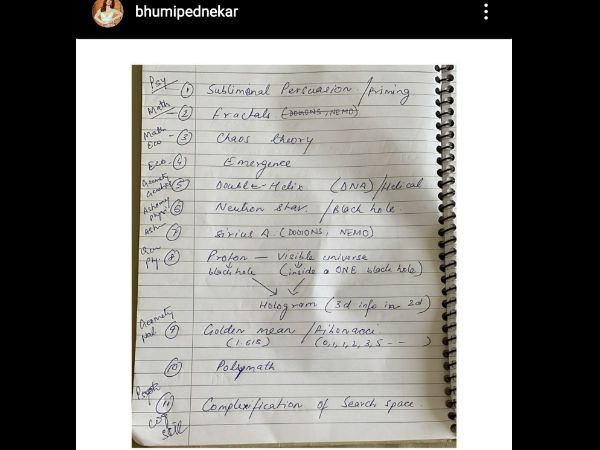 bhumipednekar
Psy ① Subliminal Persuasion / Priming
Math - ② Fractals (DOGONS, NEMO)
Math Eco - ③ Chaos theory
Eco ④ Emergence
Geometry ⑤ Double-Helix (DNA) / Helical
⑥ Neutron star / Black hole
⑦ Sirius A. (DOGONS, NEMO)
Phy. ⑧ Proton — Visible universe
black hole (inside a ONE black hole)
Hologram (3d info in 2d)
Geometry ⑨ Golden mean / Fibonacci
(1.618) (0,1,1,2,3,5 -- )
⑩ Polymath
⑪ Complexification of Search space.